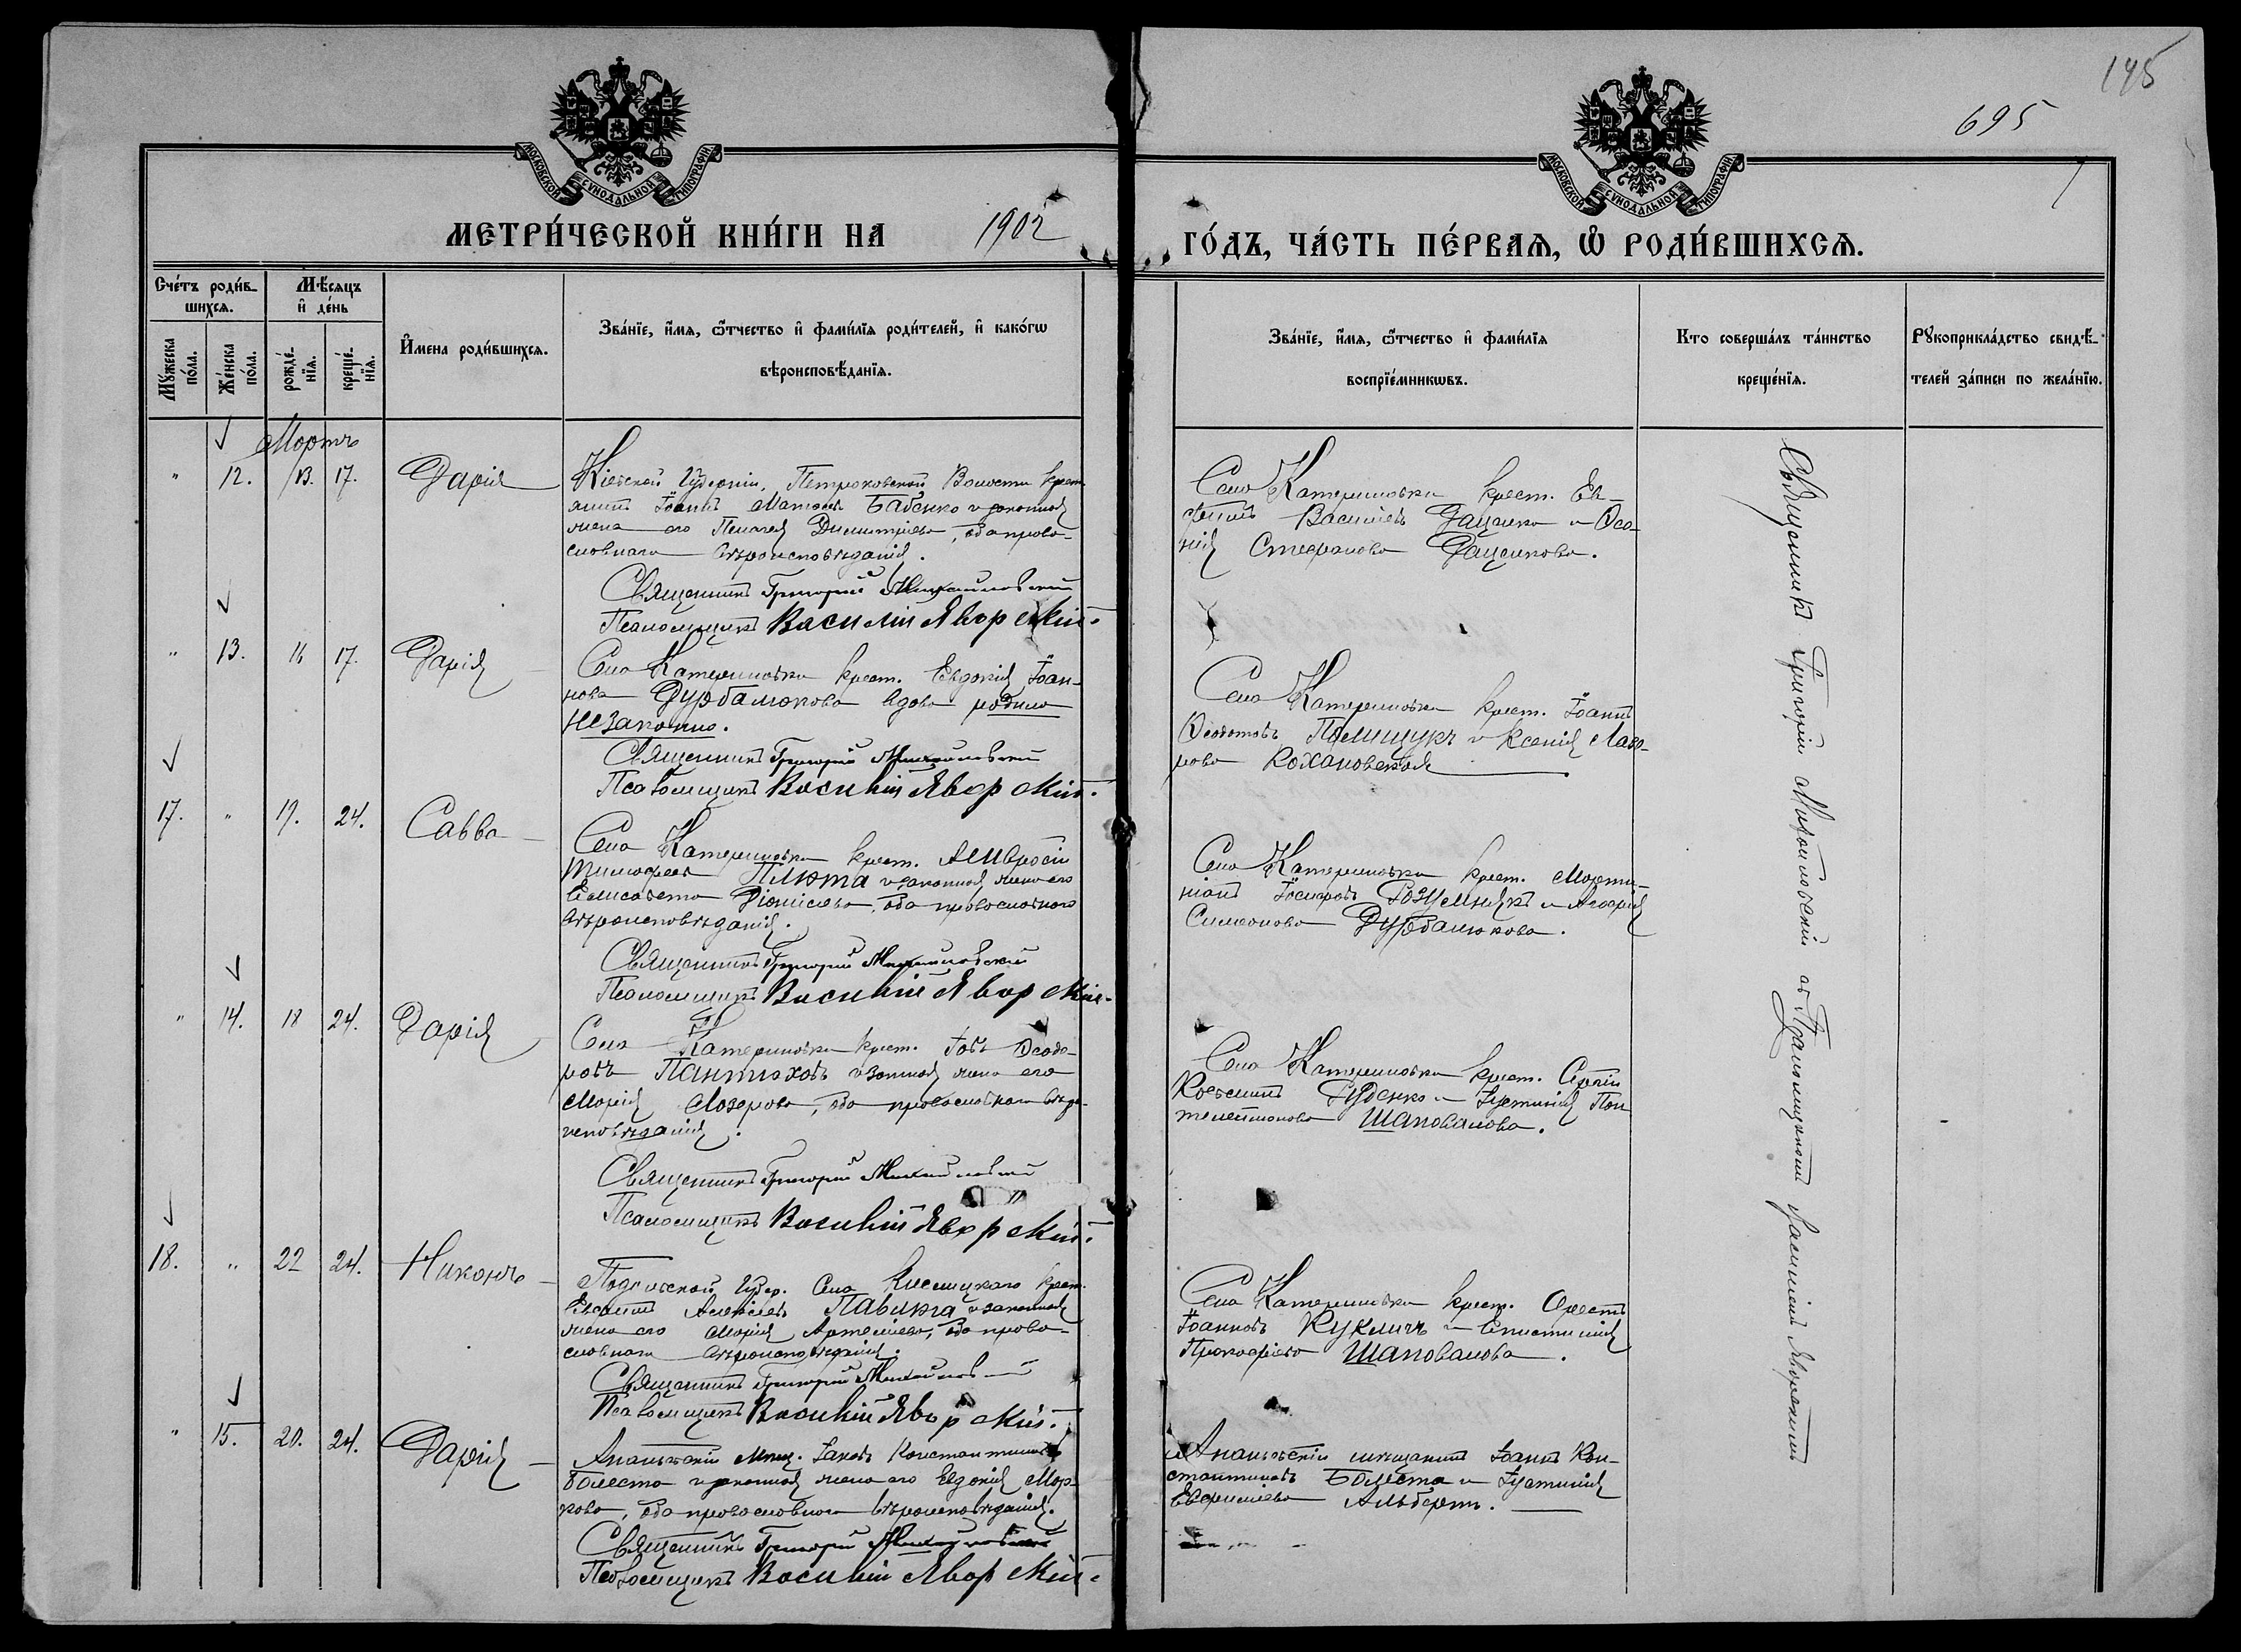 195
695
МОСКОВСКОЙ СУНОДАЛЬНОЙ ТИПОГРАФІИ
МОСКОВСКОЙ СУНОДАЛЬНОЙ ТИПОГРАФІИ
МЕТРИ́ЧЕСКОЙ КНИ́ГИ НА 1902 ГО́ДЪ, ЧА́СТЬ ПЕ́РВАѦ, Ѽ РОДИ́ВШИХСѦ.
Сче́тъ роди́в-
шихсѧ.
Мꙋ́жеска по́ла.
Же́нска по́ла.
Мѣ́сѧцъ и҆ де́нь
рожде́-нїѧ.
креще́-нїѧ.
И҆мена̀ роди́вшихсѧ.
Зва́нїе, и҆́мѧ, ѻ҆́тчество и҆ фами́лїѧ роди́телей, и҆ како́гѡ
вѣроисповѣ́данїѧ.
Зва́нїе, и҆́мѧ, ѻ҆́тчество и҆ фами́лїѧ
воспрїе́мникѡвъ.
Кто̀ соверша́лъ та́инство
креще́нїѧ.
Рꙋкоприкла́дство свидѣ́-
телей за́писи по жела́нїю.
Мартъ
" 12. 13. 17. Дарія
Кіевской Губерніи, Волости крест
янинъ Іоаннъ Бабенко и законная
жена его Пелагея Димитріева, оба право-
славнаго вѣроисповѣданія.
Священникъ Григорій Михайловскій
Псаломщикъ Василій Яворскій
Села Катериновки крест. Ев-
Васильевъ Даценко и
Стефанова Даценкова.
" 13. 16 17. Дарія
Села Катериновки крест. Евдокія Іоан-
нова Дурбалюкова вдова родила
незаконно.
Священникъ Григорій Михайловскій
Псаломщикъ Василій Яворскій
Села Катериновки крест. Іоаннъ
Полищукъ и Ксенія Лаза-
рова Кохановская
17. " 19. 24. Савва
Села Катериновки крест. Амвросій
Тимофеевъ Плюта и законная жена его
Елисавета Діонисіева, оба православнаго
вѣроисповѣданія.
Священникъ Григорій Михайловскій
Псаломщикъ Василій Яворскій
Села Катериновки крест. Марти-
ніанъ Іосифовъ и Агафія
Симеонова Дурбалюкова.
" 14. 18 24. Дарія
Села Катериновки крест. Іовъ Ѳеодо-
ровъ Пантюховъ и законная жена его
Марія Лазарова, оба православнаго вѣро-
исповѣданія.
Священникъ Григорій Михайловскій
Псаломщикъ Василій Яворскій
Села Катериновки крест.
Руденко и Іустинія Пан-
телеимонова Шаповалова.
18. " 22 24. Никонъ
Подольской Губер. Села крест.
Алексіевъ и законная
жена его Марія Артеміева, оба право-
славнаго вѣроисповѣданія.
Священникъ Григорій Михайловскій
Псаломщикъ Василій Яворскій
Села Катериновки крест. Орестъ
Іоанновъ Кукличъ и Епистимія
Прокофіева Шаповалова.
" 15. 20. 24. Дарія
Ананьевскій мѣщ. Іаковъ Константиновъ
Болеста и законная жена его Евдокія Мар-
кова, оба православнаго вѣроисповѣданія.
Священникъ Григорій Михайловскій
Псаломщикъ Василій Яворскій
Ананьевскій мѣщанинъ Іоаннъ Кон-
стантиновъ Болеста и Іустинія
Евфиміева Альбертъ.
Священникъ Григорій Михайловскій съ Псаломщикомъ Василіемъ Яворскимъ